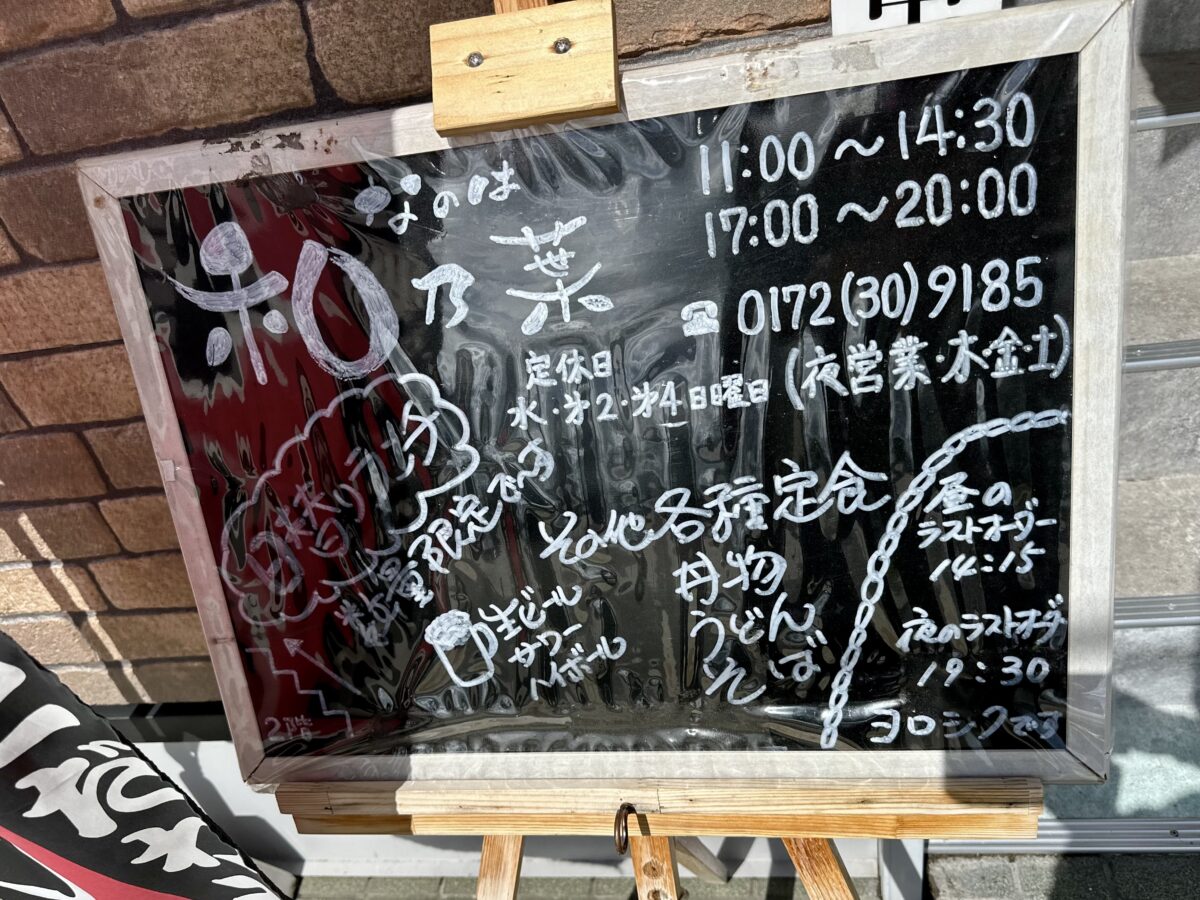 なのは
和乃葉
11:00～14:30
17:00～20:00
☎ 0172(30)9185
(夜営業・木・金・土)
定休日
水・第2・第4日曜日
日替りランチ
数量限定です
その他 各種定食
丼物
うどん
そば
生ビール
サワー
ハイボール
2階
昼の
ラストオーダー
14:15
夜のラストオーダー
19:30
ヨロシクです